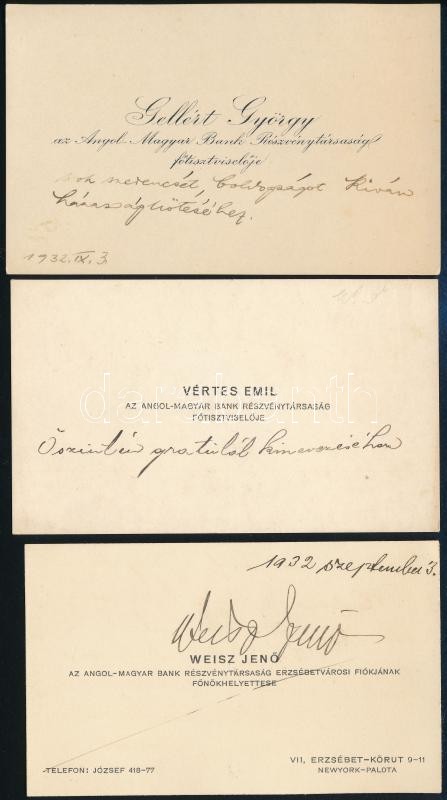 Gellért György
az Angol-Magyar Bank Részvénytársaság
főtisztviselője
sok szerencsét boldogságot kíván
házasságkötéséhez.
1932. IX. 3.
VÉRTES EMIL
AZ ANGOL-MAGYAR BANK RÉSZVÉNYTÁRSASÁG
FŐTISZTVISELŐJE
Őszintén gratulál kinevezéséhez
1932 szeptember 3.
Weisz Jenő
WEISZ JENŐ
AZ ANGOL-MAGYAR BANK RÉSZVÉNYTÁRSASÁG ERZSÉBETVÁROSI FIÓKJÁNAK
FŐNÖKHELYETTESE
TELEFON: JÓZSEF 418-77
VII, ERZSÉBET-KÖRUT 9-11
NEWYORK-PALOTA